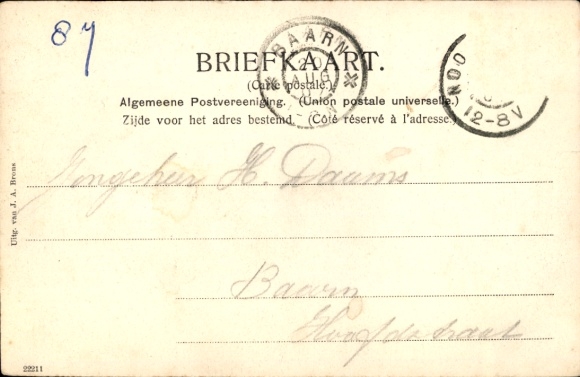 87
BRIEFKAART.
(Carte postale.)
Algemeene Postvereeniging. (Union postale universelle.)
Zijde voor het adres bestemd. (Côté réservé à l'adresse.)
BAARN
20
AUG
12-8V
Jongeheer H. Daams
Baarn
Hoofdstraat
Uitg. van J. A. Brons
22211